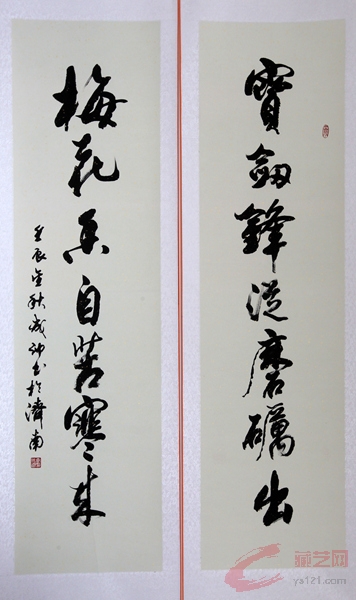 寳劔鋒從磨礪出
梅花香自苦寒來
壬辰金秋成沖書於濟南
藏艺网
ys121.com